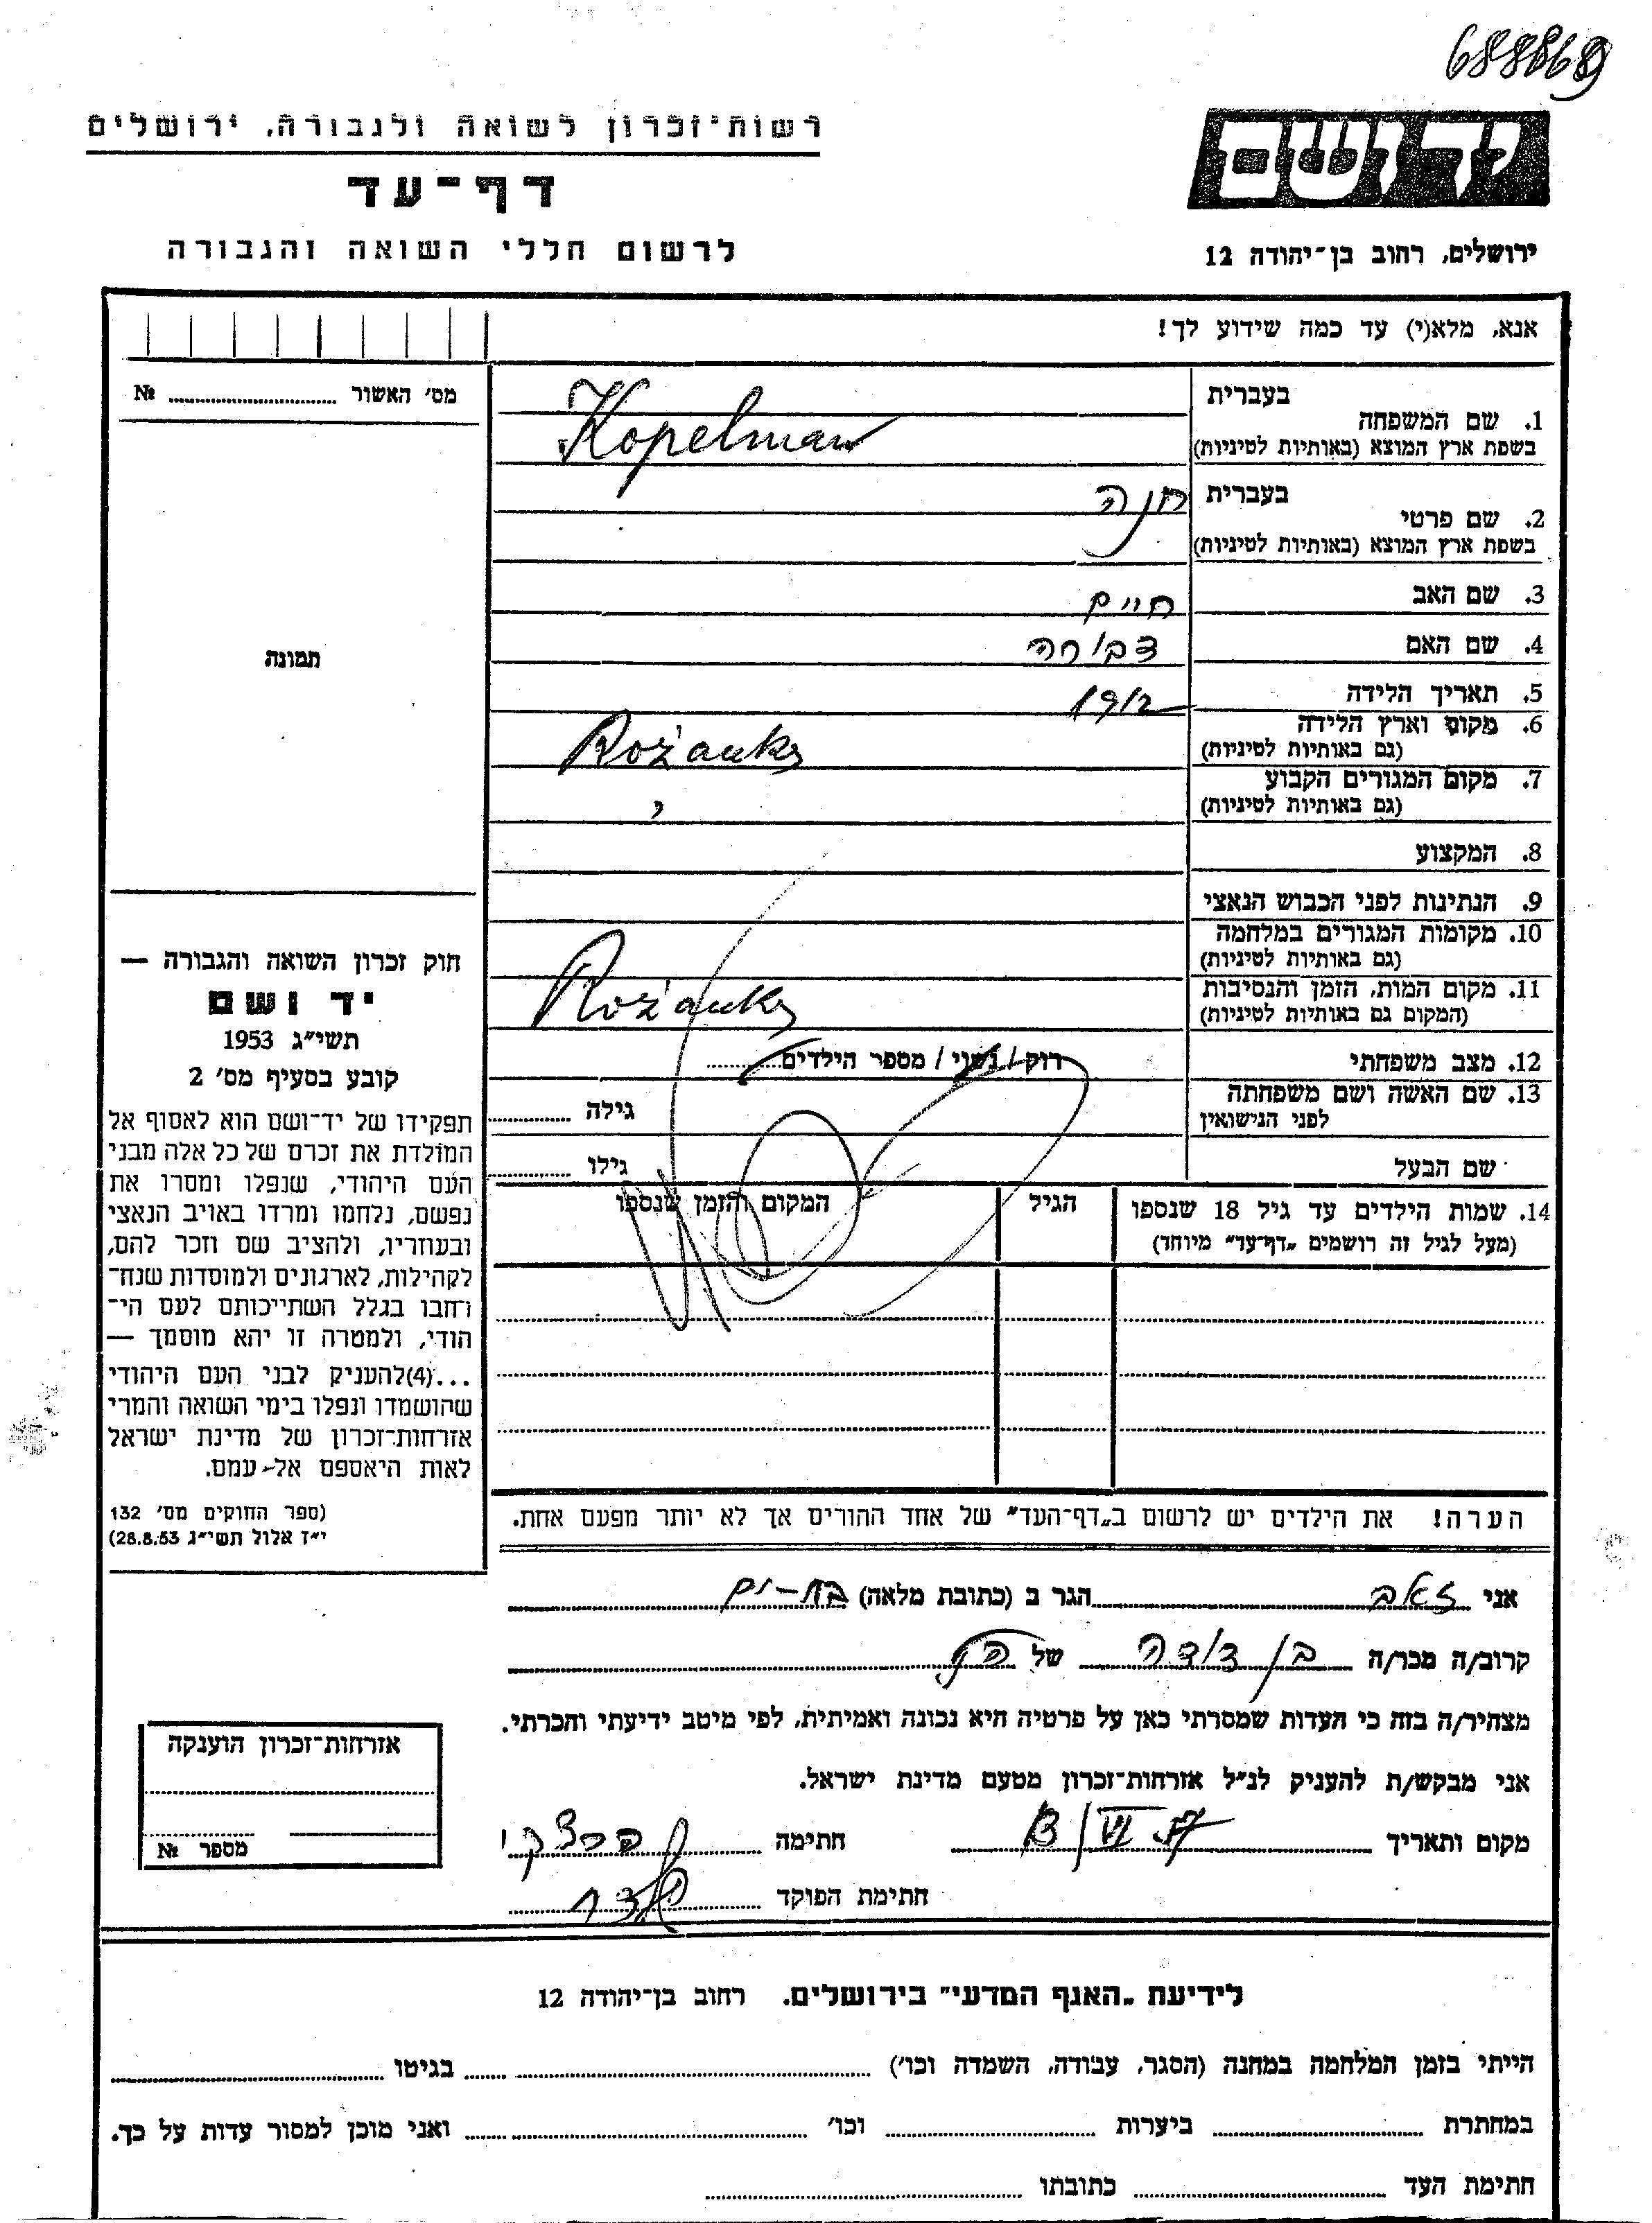 רשות־זכרון לשואה ולגבורה, ירושלים
דף־עד
לרשום חללי השואה והגבורה
יד ושם
ירושלים, רחוב בן־יהודה 12
אנא, מלא(י) עד כמה שידוע לך!
מס׳ האשור № 
תמונה
1. שם המשפחה
בעברית
בשפת ארץ המוצא (באותיות לטיניות) Kopelman
2. שם פרטי
בעברית חנה
בשפת ארץ המוצא (באותיות לטיניות)
3. שם האב חיים
4. שם האם דבורה
5. תאריך הלידה 1912
6. מקום וארץ הלידה Rożanka
(גם באותיות לטיניות)
7. מקום המגורים הקבוע
(גם באותיות לטיניות)
8. המקצוע
9. הנתינות לפני הכבוש הנאצי
10. מקומות המגורים במלחמה
(גם באותיות לטיניות)
11. מקום המות, הזמן והנסיבות Rożanka
(המקום גם באותיות לטיניות)
12. מצב משפחתי רוק / נשוי / מספר הילדים
13. שם האשה ושם משפחתה גילה
לפני הנישואין
שם הבעל גילו
14. שמות הילדים עד גיל 18 שנספו הגיל המקום והזמן שנספו
(מעל לגיל זה רושמים „דף־עד״ מיוחד)
הערה! את הילדים יש לרשום ב„דף־העד״ של אחד ההורים אך לא יותר מפעם אחת.
חוק זכרון השואה והגבורה —
יד ושם
תשי״ג 1953
קובע בסעיף מס׳ 2
תפקידו של יד־ושם הוא לאסוף אל
המולדת את זכרם של כל אלה מבני
העם היהודי, שנפלו ומסרו את
נפשם, נלחמו ומרדו באויב הנאצי
ובעוזריו, ולהציב שם וזכר להם,
לקהילות, לארגונים ולמוסדות שנח־
רחבו בגלל השתייכותם לעם הי־
הודי, ולמטרה זו יהא מוסמך —
...(4)להעניק לבני העם היהודי
שהושמדו ונפלו בימי השואה והמרי
אזרחות־זכרון של מדינת ישראל
לאות היאספם אל־עמם.
(ספר החוקים מס׳ 132
י״ז אלול תשי״ג 28.8.53)
אני זאב הגר ב (כתובת מלאה) בת-ים
קרוב/ה מכר/ה בן דודה של
מצהיר/ה בזה כי העדות שמסרתי כאן על פרטיה היא נכונה ואמיתית, לפי מיטב ידיעתי והכרתי.
אני מבקש/ת להעניק לנ״ל אזרחות־זכרון מטעם מדינת ישראל.
מקום ותאריך חתימה
חתימת הפוקד
אזרחות־זכרון הוענקה
מספר №
לידיעת „האגף המדעי״ בירושלים. רחוב בן־יהודה 12
הייתי בזמן המלחמה במחנה (הסגר, עבודה, השמדה וכו׳) בגיטו
במחתרת ביערות וכו׳ ואני מוכן למסור עדות על כך.
חתימת העד כתובתו